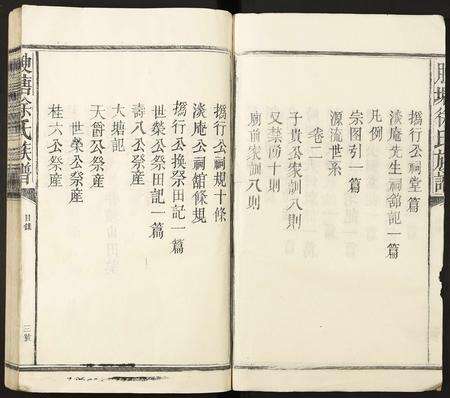 腴塘徐氏族譜
搢行公祠堂篇
淡庵先生祠舘記一篇
凡例
宗圖引一篇
源流世系
卷二
子貴公家訓八則
又禁約十則
廟前家訓八則
搢行公祠規十條
淡庵公祠舘條規
搢行公換祭田記一篇
世榮公祭田記一篇
壽八公祭產
大塘記
天爵公祭產
世榮公祭產
桂六公祭產
腴塘徐氏族譜
目錄
三號